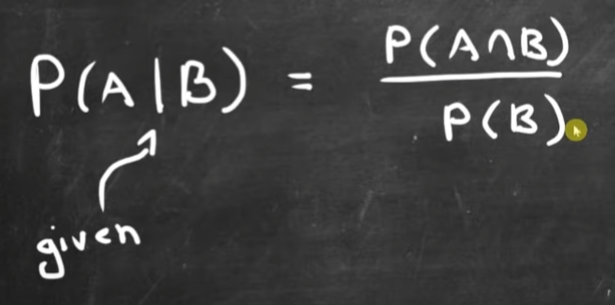 P(A|B) = P(A∩B)
P(B)
given